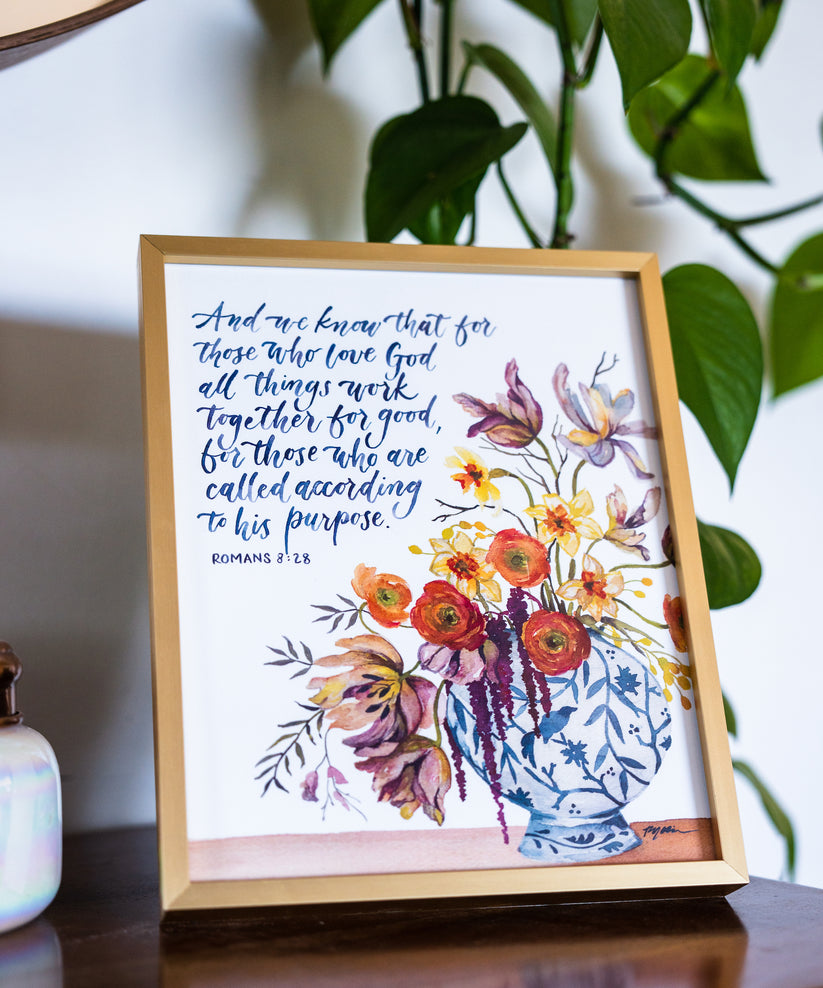 And we know that for
those who love God
all things work
together for good,
for those who are
called according
to his purpose.
ROMANS 8:28